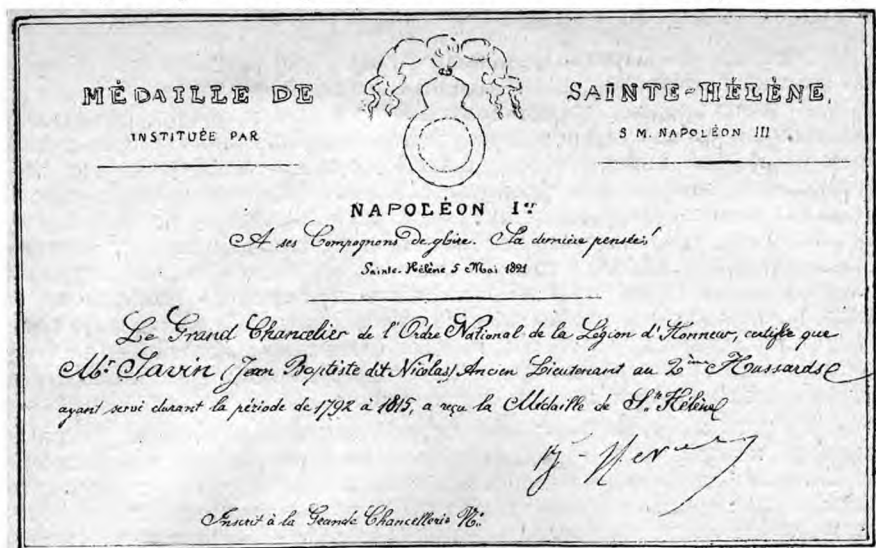 MÉDAILLE DE SAINTE-HÉLÈNE,
INSTITUÉE PAR S M. NAPOLÉON III
NAPOLÉON Ier
A ses Compagnons de gloire. Sa dernière pensée!
Sainte-Hélène 5 Mai 1821
Le Grand Chancelier de l'Ordre National de la Légion d'Honneur, certifie que
Mr. Savin (Jean Baptiste dit Nicolas) Ancien Lieutenant au 2ème Hussards
ayant servi durant la période de 1792 à 1815, a reçu la Médaille de Ste Hélène
Inscrit à la Grande Chancellerie No.